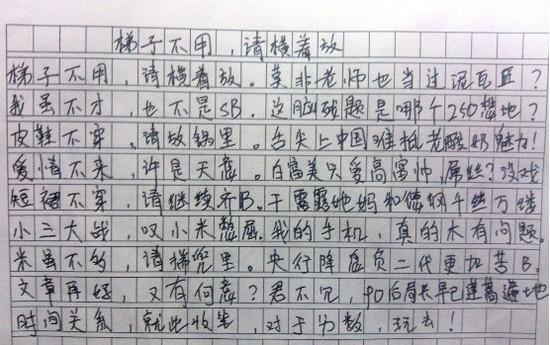 梯子不用，请横着放
梯子不用，请横着放。莫非老师也当过泥瓦匠？
我虽不才，也不是SB。这脑残题是哪个250想地？
皮鞋不穿，请放锅里。舌尖上中国难抵老酸奶魅力！
爱情不来，许是天意。白富美只爱高富帅，屌丝？没戏
短裙不穿，请继续齐B。干露露她妈和德纲千丝万缕
小三大战，叹小米憋屈。我的手机，真的木有问题。
米虽不够，请梯兜里。央行降息负二代更加苦B。
文章再好，又有何意？君不见，90后局长早已蓬蒿遍地
时间关系，就此收笔，对于分数，玩去！